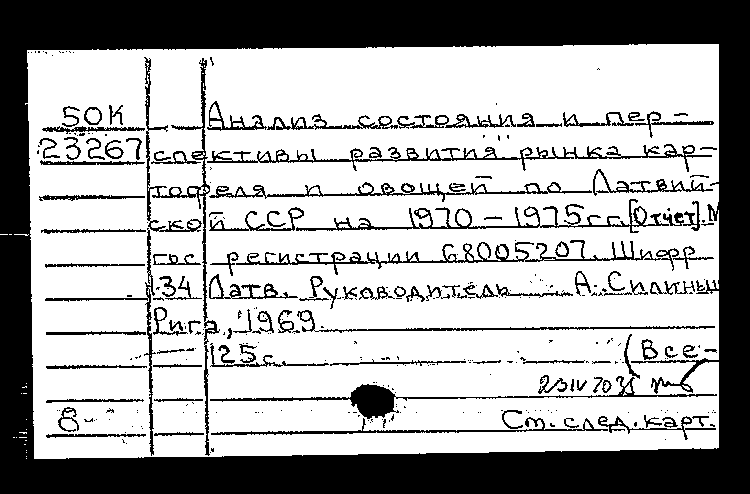 50К Анализ состояния и пер-
23267 спективы развития рынка кар-
тофеля и овощей по Латвий-
ской ССР на 1970-1975гг.[Отчет].М
гос регистрации 68005207. Шифр
134 Латв. Руководитель А.Силиньш
Рига, 1969.
125с. (Все-
8- См.след.карт.